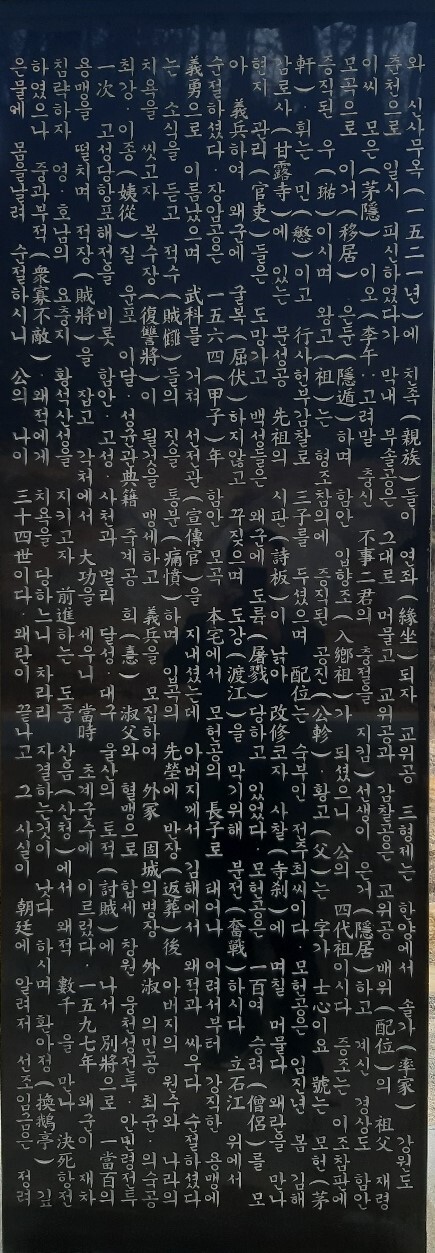 와 신사무옥(一五二一년)에 친족(親族)들이 연좌(緣坐)되자 교위공 三형제는 한양에서 솔가(率家) 강원도
춘천으로 일시 피신하였다가 막내 부솔공은 그대로 머물고 교위공과 감찰공은 교위공 배위(配位)의 祖父 재령
이씨 모은(茅隱) 이오(李午:고려말 충신 不事二君의 충절을 지킴)선생이 은거(隱居)하고 계신 경상도 함안
모곡으로 이거(移居) 은둔(隱遁)하며 함안 입향조(入鄕祖)가 되셨으니 公의 四代祖이시다 증조는 이조참판에
증직된 우(㻛)이시며 왕고(祖)는 형조참의에 증직된 공진(公軫)·황고(父)는 字가 士心이요 號는 모헌(茅
軒) 휘는 민(慜)이고 行사헌부감찰로 三子를 두셨으며 配位는 숙부인 전주최씨이다·모헌공은 임진년 봄 김해
감로사(甘露寺)에 있는 문성공 先祖의 시판(詩板)이 낡아 改修코자 사찰(寺刹)에 며칠 머물다 왜란을 만나
현지 관리(官吏)들은 도망가고 백성들은 왜군에 도륙(屠戮)당하고 있었다·모헌공은 一百여 승려(僧侶)를 모
아 義兵하여 왜군에 굴복(屈伏)하지않고 꾸짖으며 도강(渡江)을 막기위해 분전(奮戰)하시다 立石江 위에서
순절하셨다·장암공은 一五六四(甲子)年 함안 모곡 本宅에서 모헌공의 長子로 태어나 어려서부터 강직한 용맹에
義勇으로 이름났으며 武科를 거쳐 선전관(宣傳官)을 지내셨는데 아버지께서 김해에서 왜적과 싸우다 순절하셨다
는 소식을 듣고 적수(賊讎)들의 짓을 통분(痛憤)하며 입곡의 先塋에 반장(返葬)後 아버지의 원수와 나라의
치욕을 씻고자 복수장(復讐將)이 될것을 맹세하고 義兵을 모집하여 外家 固城의명장 外叔 의민공 최균·의숙공
최강·이종(姨從)질 운포 이달·성균관典籍 죽계공 희(憙) 淑父와 혈맹으로 합세 창원 웅천성전투·안민령전투
一次 고성당항포해전을 비롯 함안·고성·사천과 멀리 달성 대구 울산의 토적(討賊)에 나서 別將으로 一當百의
용맹을 떨치며 적장(賊將)을 잡고 각처에서 大功을 세우니 當時 초계군수에 이르렀다·一五九七年 왜군이 재차
침략하자 영·호남의 요충지 황석산성을 지키고자 前進하는 도중 상음(산청)에서 왜적 數千 을 만나 決死항전
하였으나 중과부적(衆寡不敵)·왜적에게 치욕을 당하느니 차라리 자결하는것이 낫다 하시며 환아정(換鵝亭) 깊
은물에 몸을날려 순절하시니 公의 나이 三十四세이다·왜란이 끝나고 그 사실이 朝廷에 알려저 선조임금은 정려